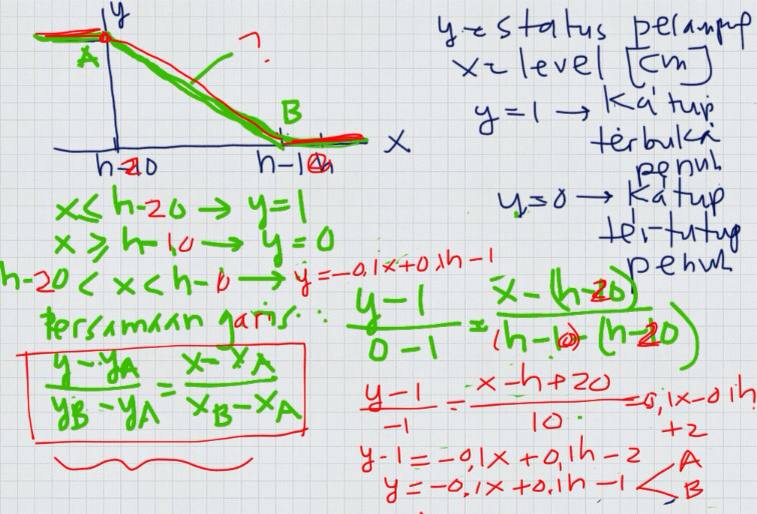 y
A
?
B
x
h-20
h-10
y = status pelampung
x = level [cm]
y = 1 → Katup
terbuka
penuh
y = 0 → Katup
tertutup
penuh
x ≤ h-20 → y = 1
x ≥ h-10 → y = 0
h-20 < x < h-10 → y = -0,1x+0,1h-1
Persamaan garis:
(y-1)/(0-1) = (x-(h-20))/((h-10)-(h-20))
(y-yA)/(yB-yA) = (x-xA)/(xB-xA)
(y-1)/-1 = (x-h+20)/10 = 0,1x-0,1h
+2
y-1 = -0,1x+0,1h-2
y = -0,1x+0,1h-1 < A
B